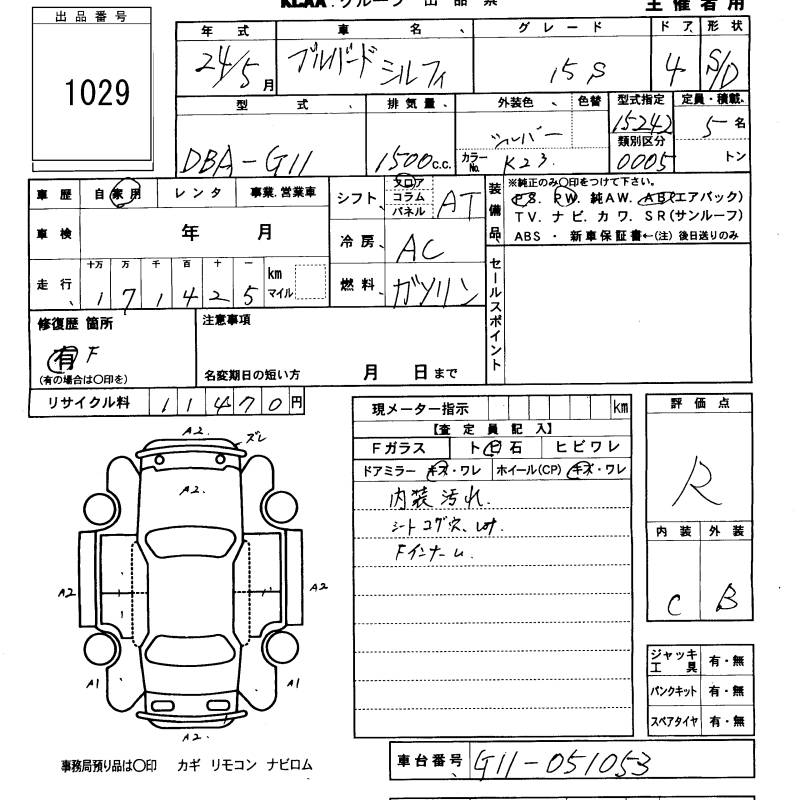 KLAA.グループ 出 品 票 主 催 者 用
出 品 番 号
1029
年 式 車 名 グ レ ー ド ド ア 形 状
24/5月 ブルーバード シルフィ 15 S 4 S/D
型 式 排 気 量 外装色 色替 型式指定 定員・積載
15242
シルバー 類別区分 5名
DBA-G11 1500c.c. カラーNo. K23 0005 トン
車 歴 自家用 レ ン タ 事業、営業車 シフト フロア コラム パネル AT
装備品 ※純正のみ○印をつけて下さい。
PS. PW. 純AW. AB(エアバック)
TV. ナ ビ. カ ワ. SR(サンルーフ)
ABS ・ 新 車 保 証 書 ←(注) 後日送りのみ
車 検 年 月 冷 房 AC
走 行 十万 万 千 百 十 一 km マイル
1 7 1 4 2 5
燃 料 ガソリン
セールスポイント
修復歴 箇所 注意事項
有 F
(有の場合は○印を) 名変期日の短い方 月 日まで
リサイクル料 1 1 4 7 0 円
現メーター指示 km
評 価 点
R
【査 定 員 記 入】
Fガラス ト ビ 石 ヒ ビ ワ レ
ドアミラー キズ・ワレ ホイール(CP) キズ・ワレ
内装 汚れ.
シート コゲ穴、
Fインナー ム.
内 装 外 装
C B
A2. ズレ
A2.
A2 A2
A1 A1
A2.
ジャッキ工 具 有・無
パンクキット 有・無
スペアタイヤ 有・無
車台番号 G11-051053
事務局預り品は○印 カギ リモコン ナビロム